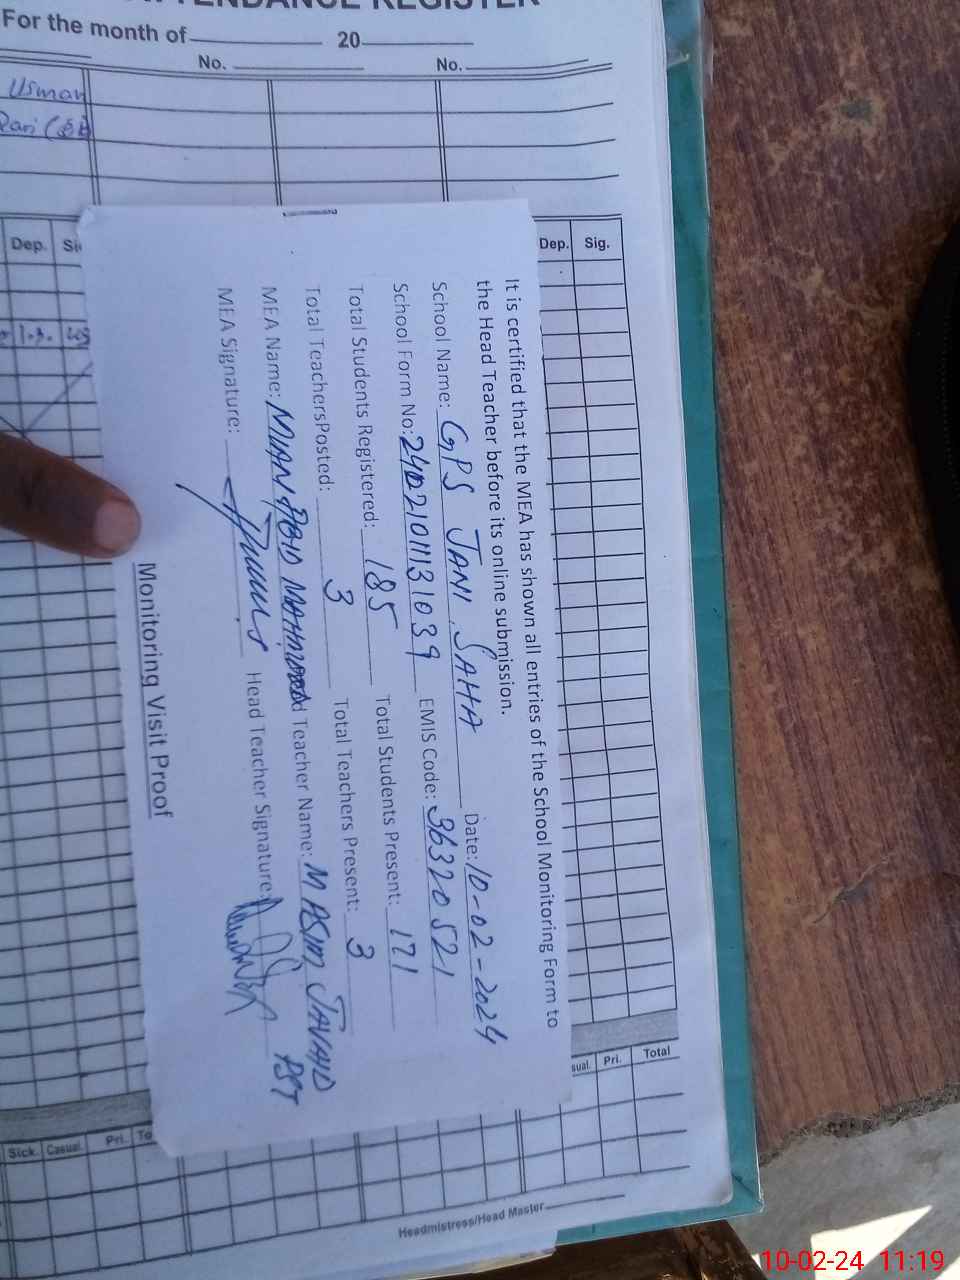 ATTENDANCE REGISTER
For the month of 20
No. No.
Usman
Dep. Sig.
Dep.
It is certified that the MEA has shown all entries of the School Monitoring Form to
the Head Teacher before its online submission.
School Name: GPS JANI SAHA Date: 10-02-2024
School Form No: 2402101131039 EMIS Code: 36320521
Total Students Registered: 185 Total Students Present: 171
Total TeachersPosted: 3 Total Teachers Present: 3
MEA Name: MIAN ABID MAHMOOD Teacher Name: M ASIM JAVAID PST
MEA Signature: Head Teacher Signature:
Monitoring Visit Proof
Pri. Total
Sick. Casual. Pri.
Headmistress/Head Master
10-02-24 11:19